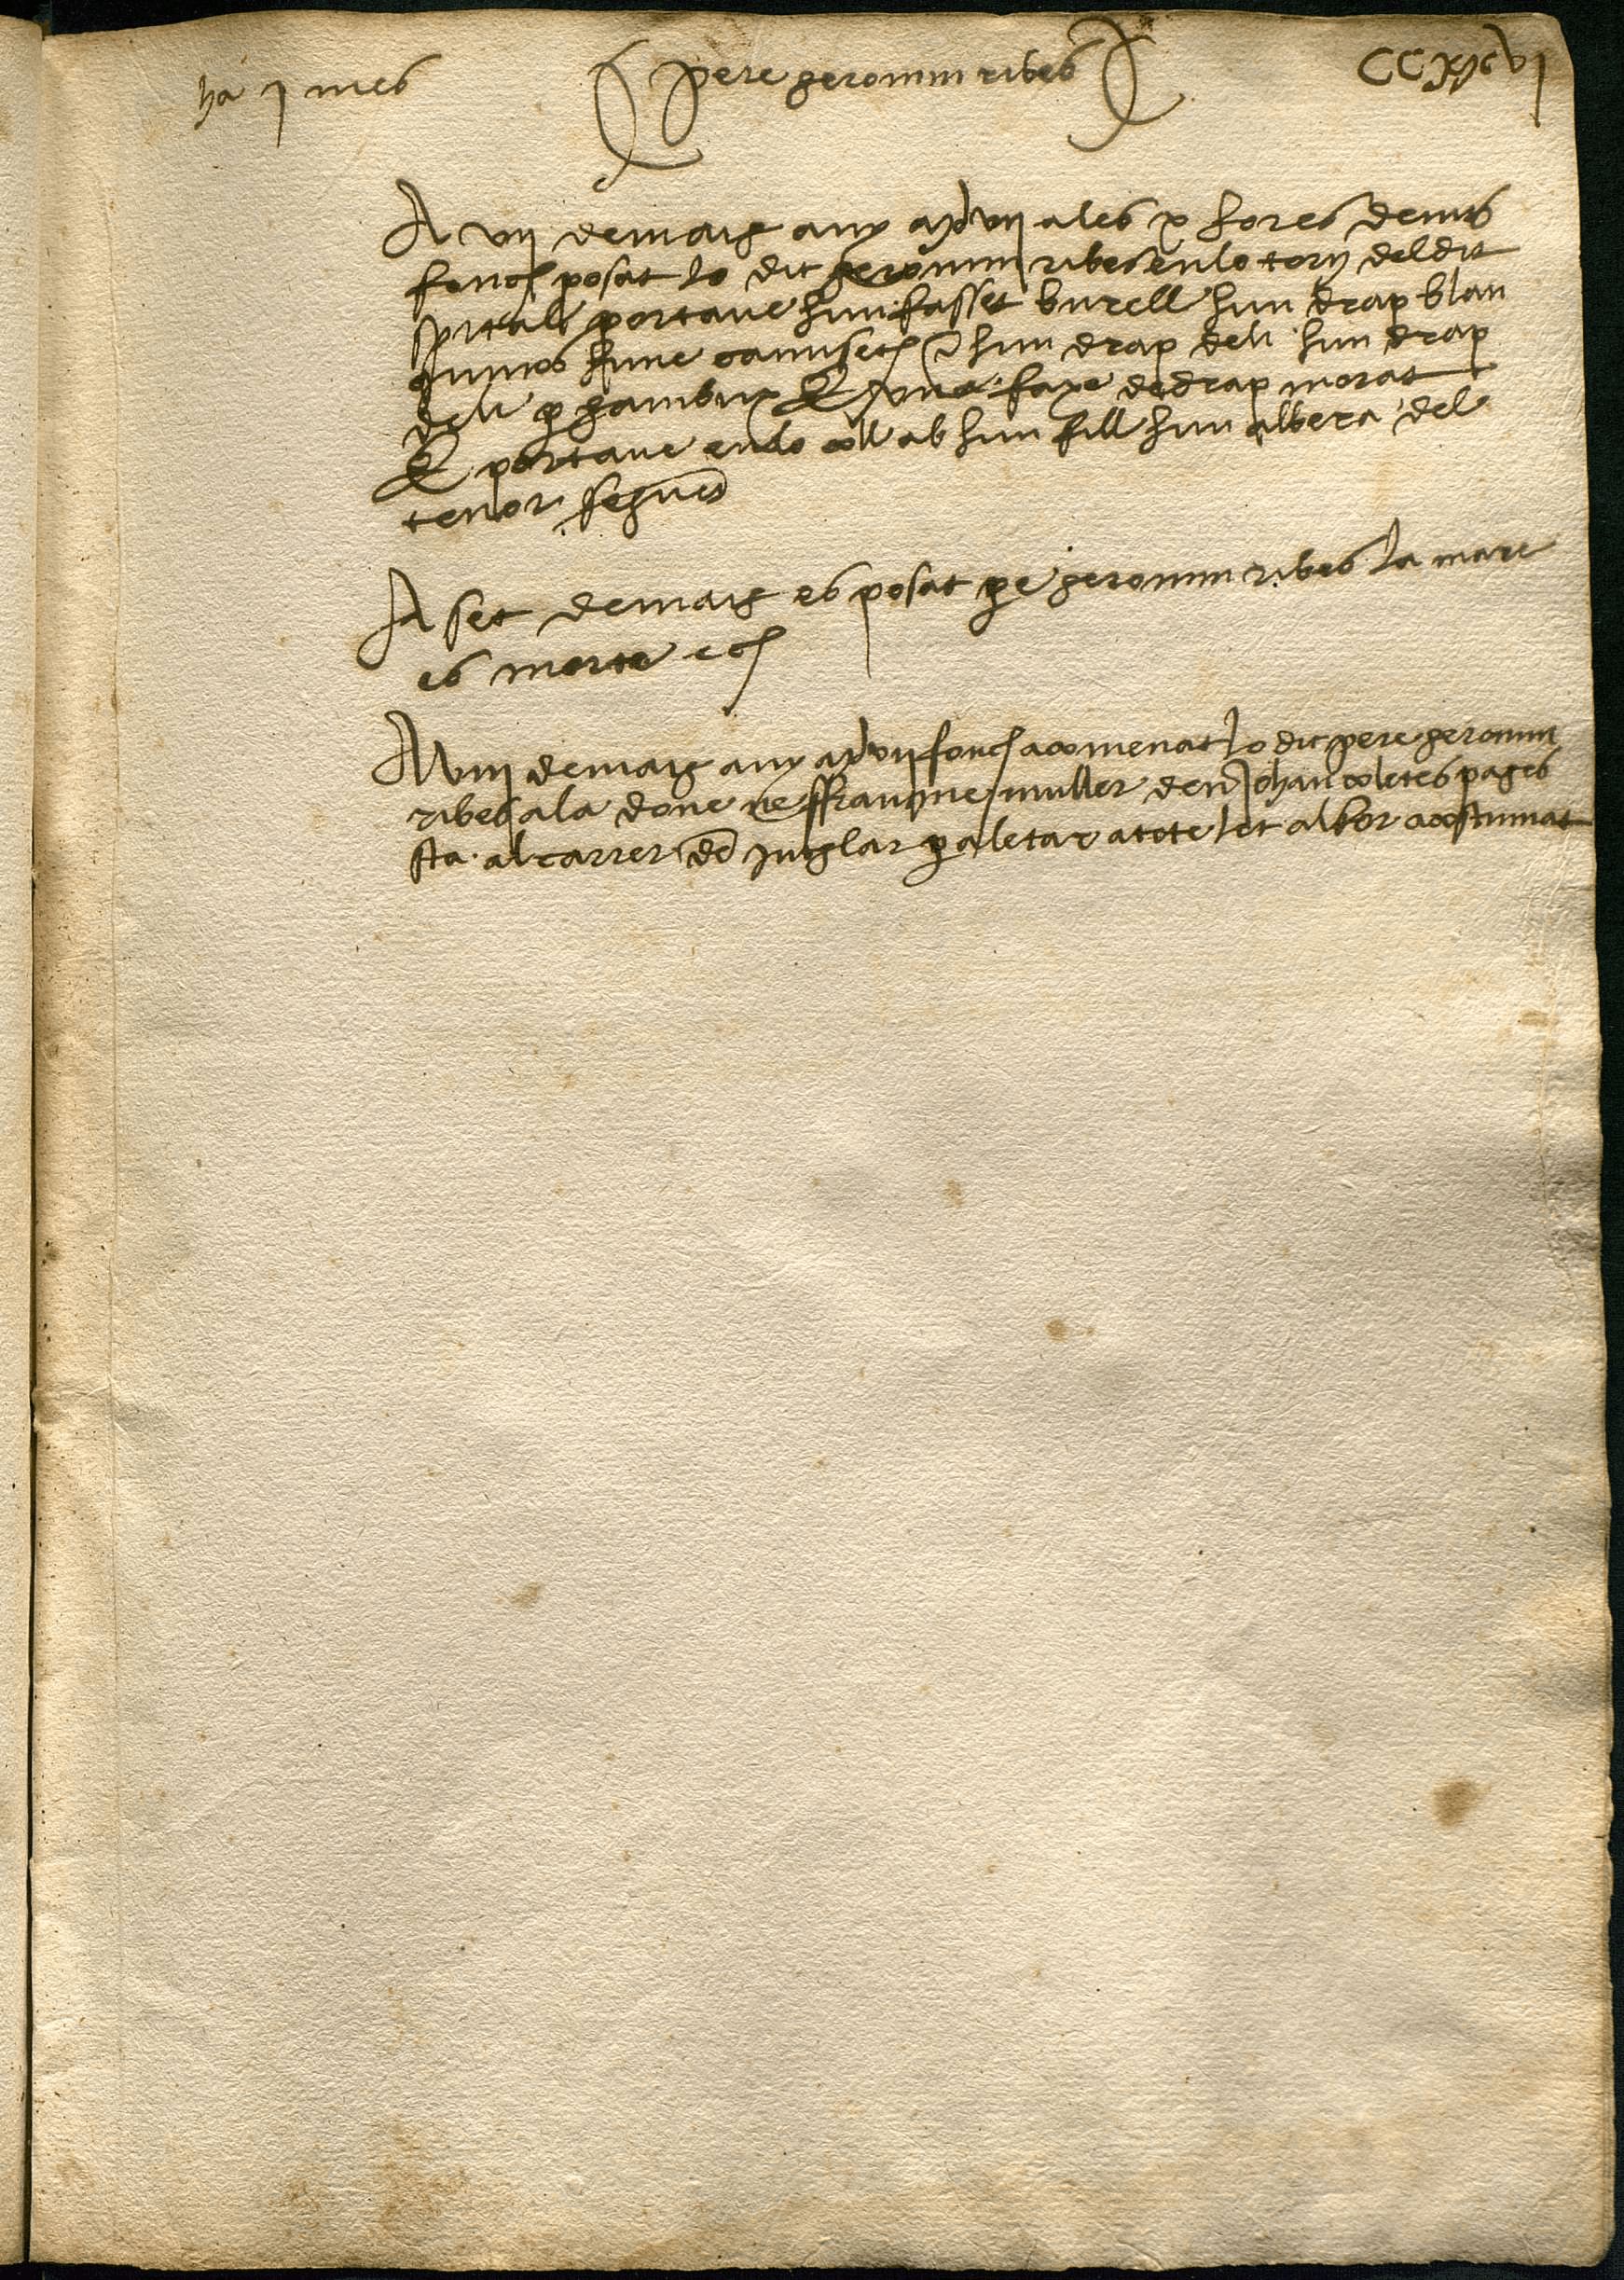 ha j mes
Pere geronim ribes
CCXXXXVI
A vij de maig any mdvij a les x hores de nit
fonch posat lo dit geronim ribes en lo torn del dit
spital portave hun fasset burell hun drap blan
hune camiseta hun drap de li hun drap
de li per gambux E hune faxe de drap morat
E portave en lo coll ab hun fill hun albera del
tenor seguent
A set de maig es posat pere geronim ribes la mare
es morta etc
A viiij de maig any mdvij fonch acomenat lo dit pere geronim
ribes a la done ne ffrancine muller den Johan coletes pages
sta al carrer den juglar per aletar a tote let al for acostumat